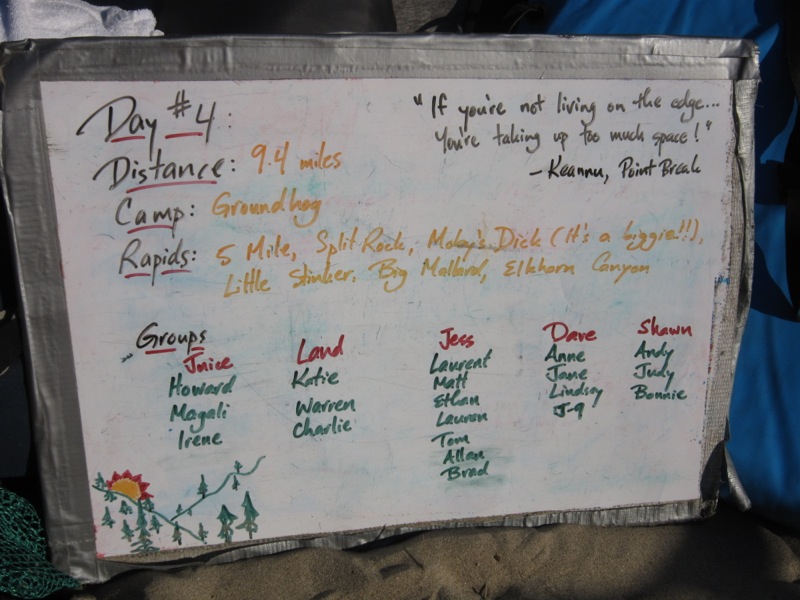 Day #4:
"If you're not living on the edge...
You're taking up too much space!"
- Keannu, Point Break
Distance: 9.4 miles
Camp: Groundhog
Rapids: 5 Mile, Split Rock, Moby's Dick (It's a biggie!!),
Little Stinker, Big Mallard, Elkhorn Canyon
Groups
Juice
Howard
Magali
Irene
Land
Katie
Warren
Charlie
Jess
Laurent
Matt
Ethan
Lauren
Tom
Allan
Brad
Dave
Anne
Jane
Lindsay
J-9
Shawn
Andy
Judy
Bonnie